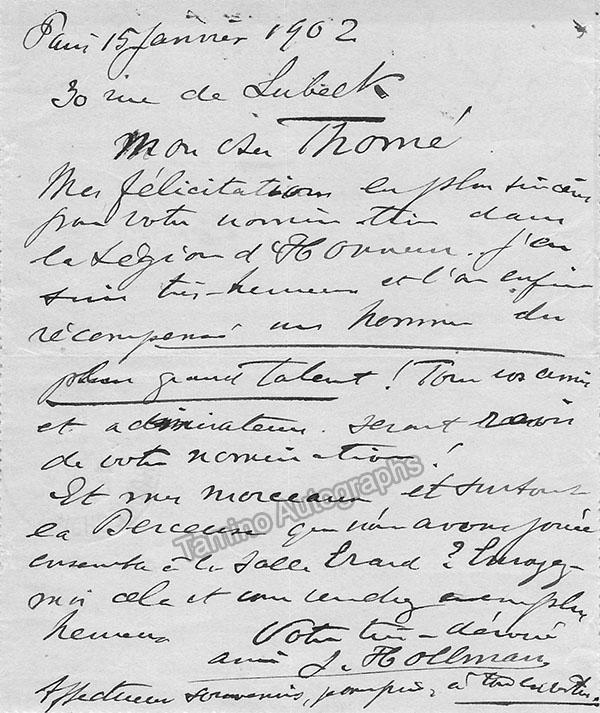 Paris 15 Janvier 1902
30 rue de Lubeck
Mon cher Thomé
Mes félicitations les plus sincères
pour votre nomination dans
la Légion d'Honneur. J'en
suis très-heureux et l'on enfin
récompensé un homme du
plus grand talent! Tous vos amis
et admirateurs seront ravis
de votre nomination!
Et mes morceaux et surtout
la Berceuse que nous avons jouée
ensemble à la Salle Erard? Envoyez-
moi cela et vous rendrez
heureux Votre très-dévoué
ami J. Hollman
Affectueux souvenirs, à tous les vôtres.
Tamino Autographs